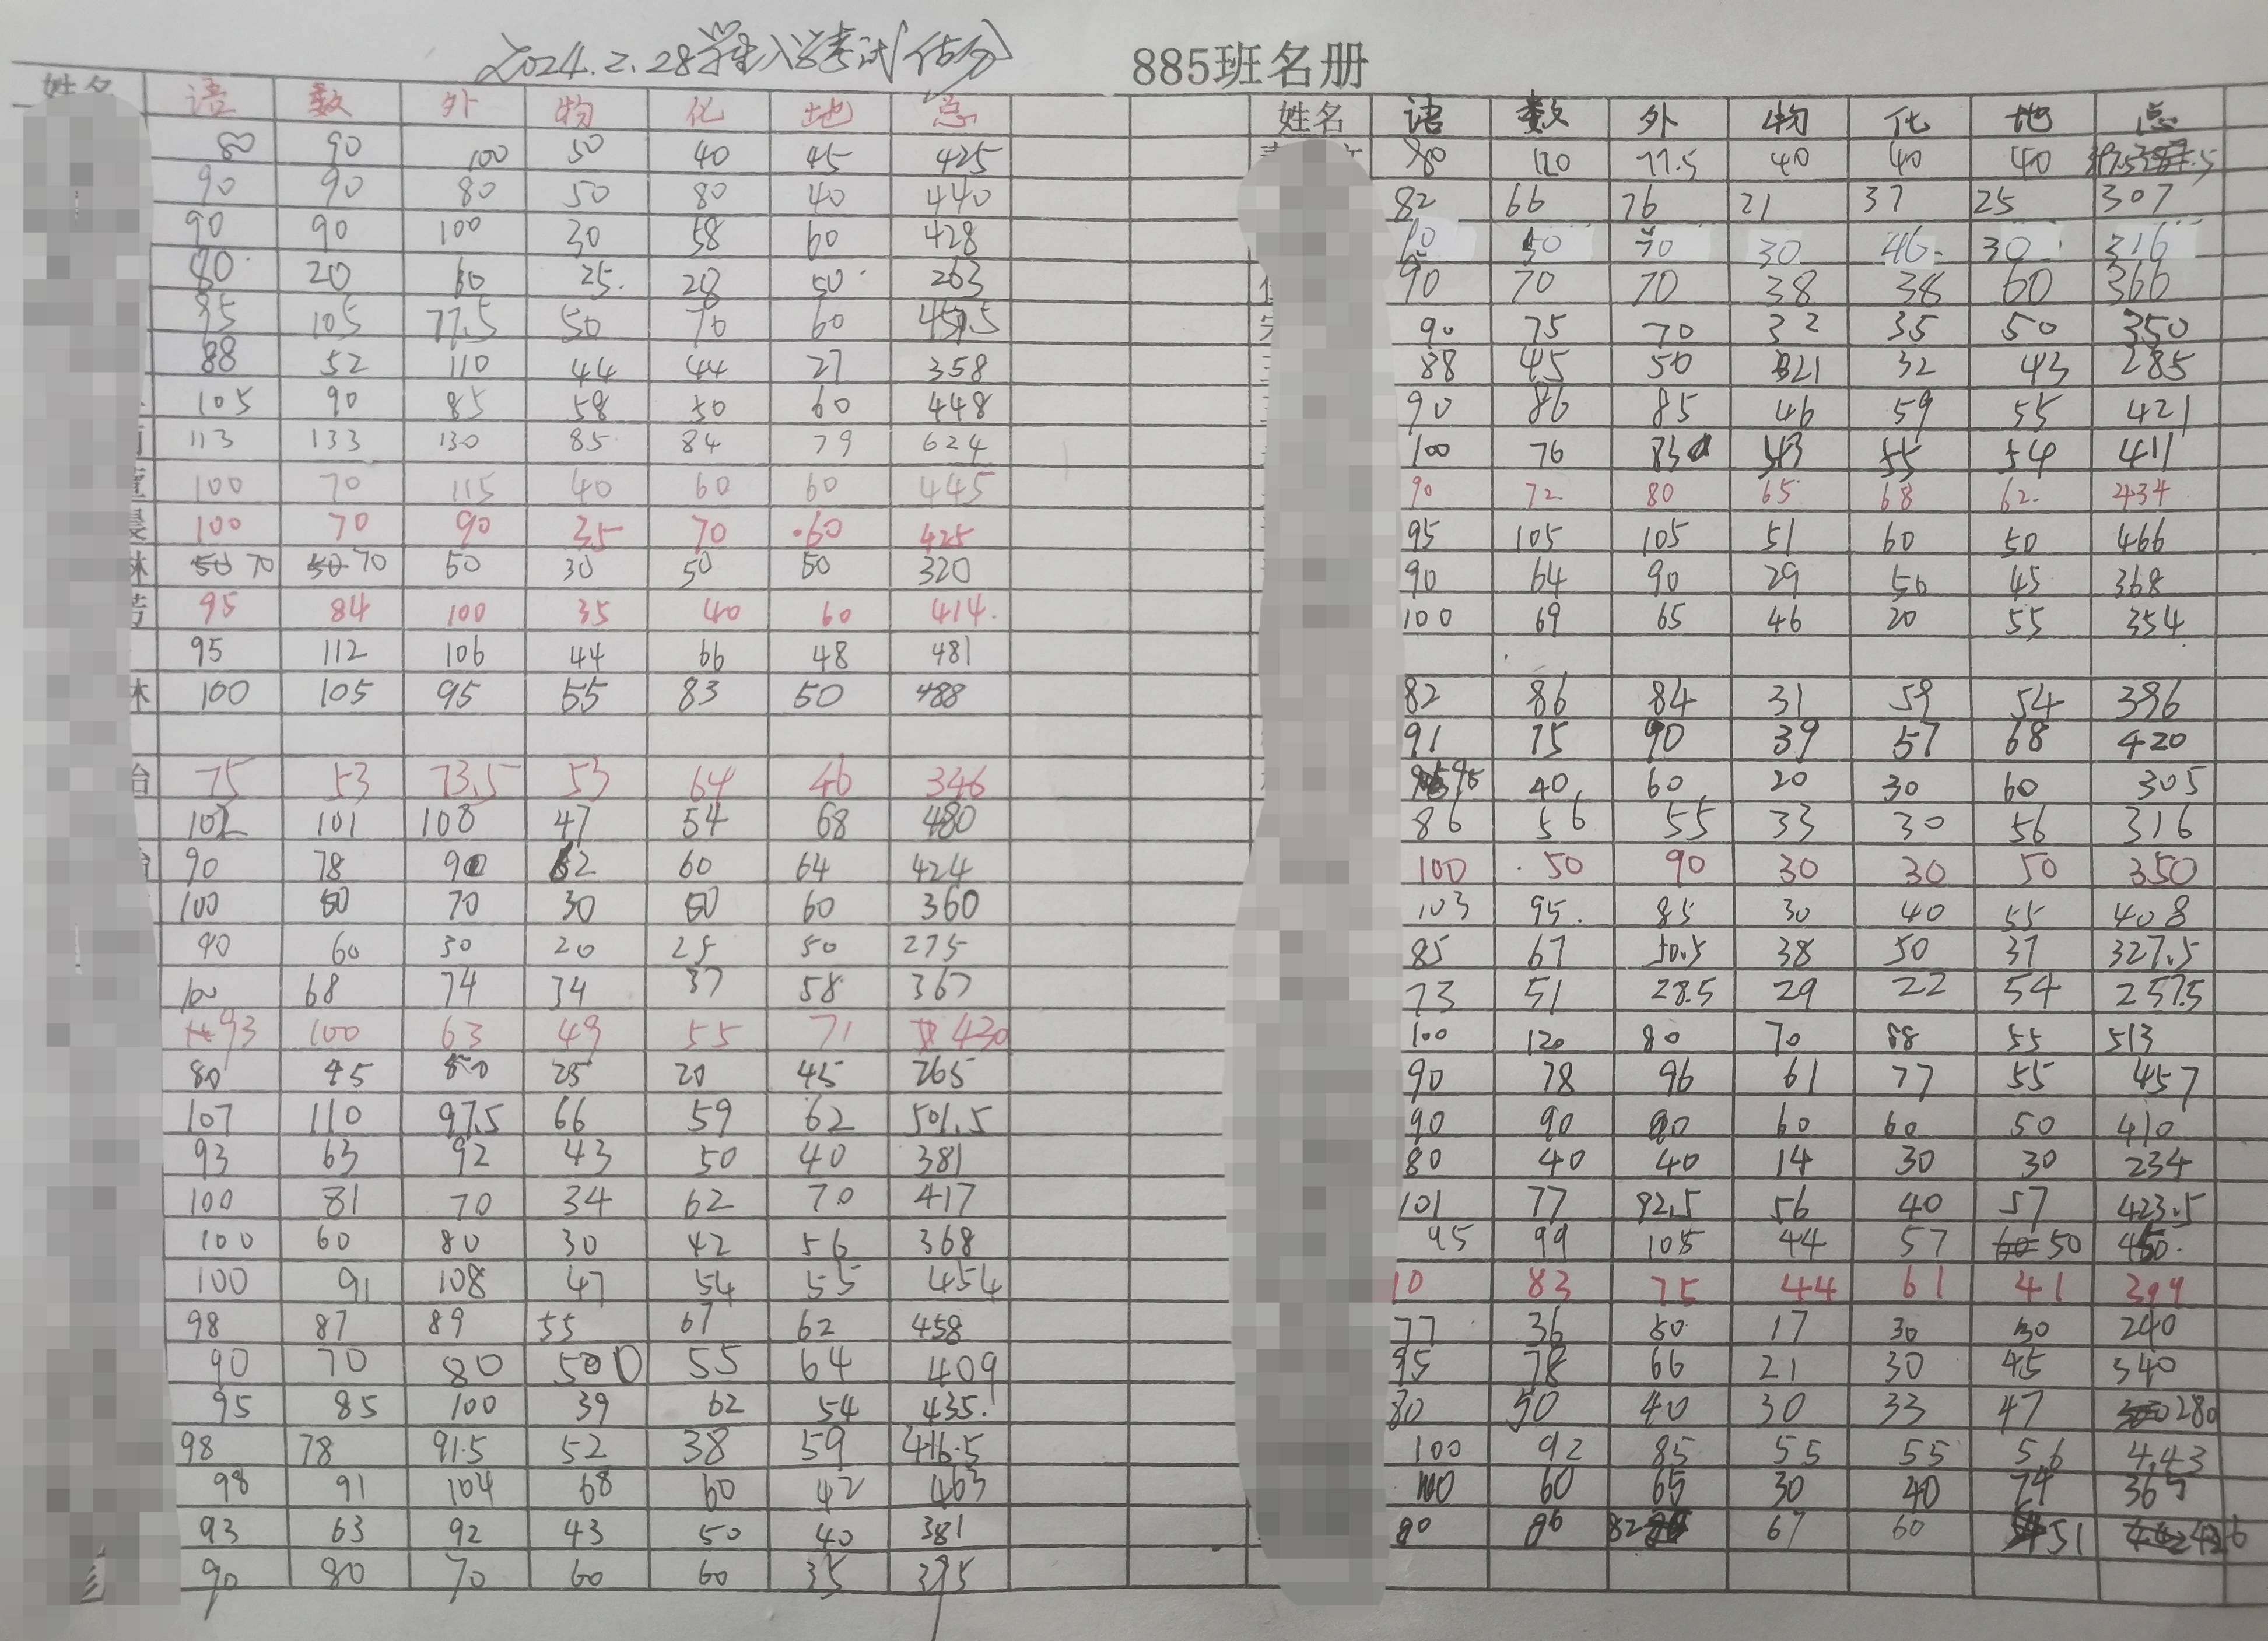 2024.2.28学生入学考试(估分) 885班名册
姓名 语 数 外 物 化 地 总 姓名 语 数 外 物 化 地 总
80 90 100 50 40 45 425 80 120 77.5 40 40 40
90 90 80 50 80 40 440 82 66 76 21 37 25 307
90 90 100 30 58 60 428 50 30 46 30 316
80 20 60 25 28 50 263 90 70 70 38 38 60 366
95 105 77.5 50 70 60 457.5 90 75 70 32 35 50 350
88 52 110 44 44 27 358 88 45 50 21 32 43 285
105 90 85 58 50 60 448 90 86 85 46 59 55 421
113 133 130 85 84 79 624 100 76 83 43 55 54 411
100 70 115 40 60 60 445 90 72 80 65 68 62 434
100 70 90 35 70 60 425 95 105 105 51 60 50 466
林 50 70 50 70 50 30 50 50 320 90 64 90 29 50 45 368
芳 95 84 100 35 40 60 414 100 69 65 46 20 55 354
95 112 106 44 66 48 481
林 100 105 95 55 83 50 488 82 86 84 31 59 54 396
91 75 90 39 57 68 420
75 53 73.5 53 64 46 346 95 40 60 20 30 60 305
102 101 108 47 54 68 480 86 56 55 33 30 56 316
90 78 90 62 60 64 424 100 50 90 30 30 50 350
100 50 70 30 50 60 360 103 95 85 30 40 55 408
90 60 30 20 25 50 275 85 67 50.5 38 50 37 327.5
100 68 74 34 37 58 367 73 51 28.5 29 22 54 257.5
93 100 63 49 55 71 430 100 120 80 70 88 55 513
80 45 50 25 20 45 265 90 78 96 61 77 55 457
107 110 97.5 66 59 62 501.5 90 90 60 60 50 410
93 63 92 43 50 40 381 80 40 40 14 30 30 234
100 81 70 34 62 70 417 101 77 92.5 56 40 57 423.5
100 60 80 30 42 56 368 95 99 105 44 57 60 50 450
100 91 108 47 54 55 454 83 75 44 61 41 399
98 87 89 55 67 62 458 77 36 50 17 30 30 240
90 70 80 50 55 64 409 95 78 66 21 30 45 340
95 85 100 39 62 54 435 80 50 40 30 33 47 280
98 78 91.5 52 38 59 416.5 100 92 85 55 55 56 443
98 91 104 68 60 42 463 100 60 65 30 40 74 369
93 63 92 43 50 40 381 80 86 82 67 60 51 426
90 80 70 60 60 35 395